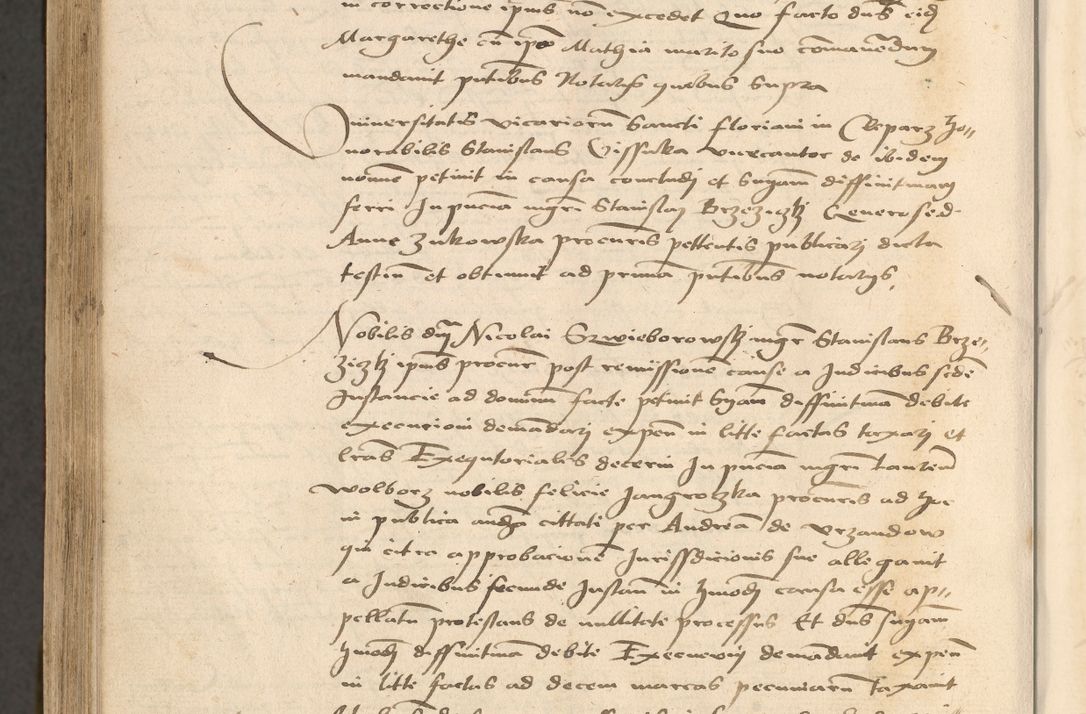 in correctione ipius no excedet Quo facto dns eid
Margarethe cu ipo Mathia marito suo comanedum
mandavit putibus Notariis quibus supra
Universitatis vicariorum Sancti floriani in Cleparz ho
norabilis Stanislaus Vissnka vicecantor de ibidem
nomine petivit in causa concludi et snyam diffinitivam
ferri In pncia mgri Stanislai Brzeziczki Generosed
Anne Zukowska procuris pettentis publicari dicta
testium et obtinuit ad primam putibus notariis
Nobilis dni Nicolai Szwieborowski mgr Stanislaus Brze
ziczki ipius procur post remissione cause a Iudicibus scde
Instancie ad dominum facte petivit snyam diffinitivam debite
execucioni demandari expen in litte factas taxari et
lras Exequtoriales decerni In pncia mgri
wolborz nobilis felicie procuris ad hoc
in publica audia cittati per Andream de Urzandow
qui citra approbacione Iurissdicionis sue allegavit
a Iudicibus secunde Instan in hmodi causa esse ap
pellatum protestans de nullitete processus Et dns snyam
hmodi diffinitivam debite Execucioni demandavit expen
in litte factas ad decem marcas pecuniarum taxavit